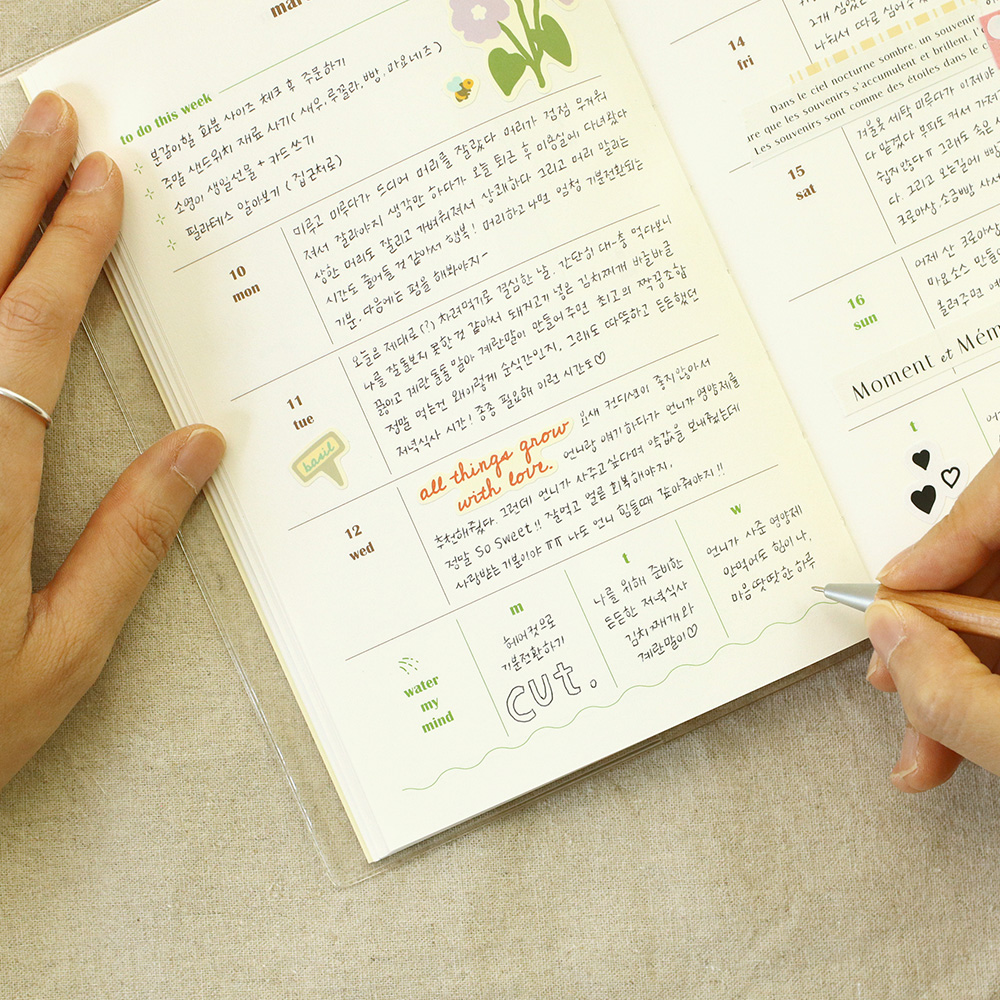 mar
to do this week
분갈이할 화분 사이즈 체크 후 주문하기
주말 샌드위치 재료 사기 (새우, 루꼴라, 빵, 마요네즈)
소영이 생일선물 + 카드쓰기
필라테스 알아보기 (집근처로)
10
mon
미루고 미루다가 드디어 머리를 잘랐다 머리가 점점 무거워
져서 잘라야지 생각만 하다가 오늘 퇴근 후 미용실에 다녀왔다
상한 머리도 잘리고 가벼워져서 상쾌하다 그리고 머리 말리는
시간도 줄어들 것 같아서 행복! 머리하고 나면 엄청 기분전환되는
기분. 다음에는 펌을 해봐야지~
11
tue
오늘은 제대로(?) 차려먹기로 결심한 날. 간단히 대-충 먹다보니
나를 잘 돌보지 못한 것 같아서 돼지고기 넣은 김치찌개 바글바글
끓이고 계란 돌돌 말아 계란말이 만들어 주면 최고의 짝꿍조합
정말 먹는건 왜이렇게 순식간인지, 그래도 따뜻하고 든든했던
저녁식사 시간! 종종 필요해 이런 시간도♡
basil
12
wed
all things grow
with love.
요새 컨디션이 좋지않아서
언니랑 얘기하다가 언니가 영양제를
추천해줬다. 그런데 언니가 사주고싶다며 깜짝 보내줬는데
정말 so sweet!! 잘먹고 얼른 회복해야지.
사랑받는 기분이야 ㅠㅠ 나도 언니 힘들때 갚아줘야지!!
water
my
mind
m
헤어컷으로
기분전환하기
cut.
t
나를 위해 준비한
든든한 저녁식사
김치찌개와
계란말이♡
w
언니가 사준 영양제
안먹어도 힘이 나.
마음 땃땃한 하루
2개 심었
나눠서 따로 심어주
14
fri
Dans le ciel nocturne sombre, un souvenir
ire que les souvenirs s'accumulent et brillent. l'
Les souvenirs sont comme des étoiles dans le
15
sat
겨울옷 세탁 미루다가 이제야
다 맡겼다 부피도 커서 가져
쉽지 않다ㅠ 그래도 속은
다. 그리고 오는길에 빵
크로아상, 소금빵 사서
16
sun
어제 산 크로아상
마요소스 만들
올려주면
Moment et Mém
t